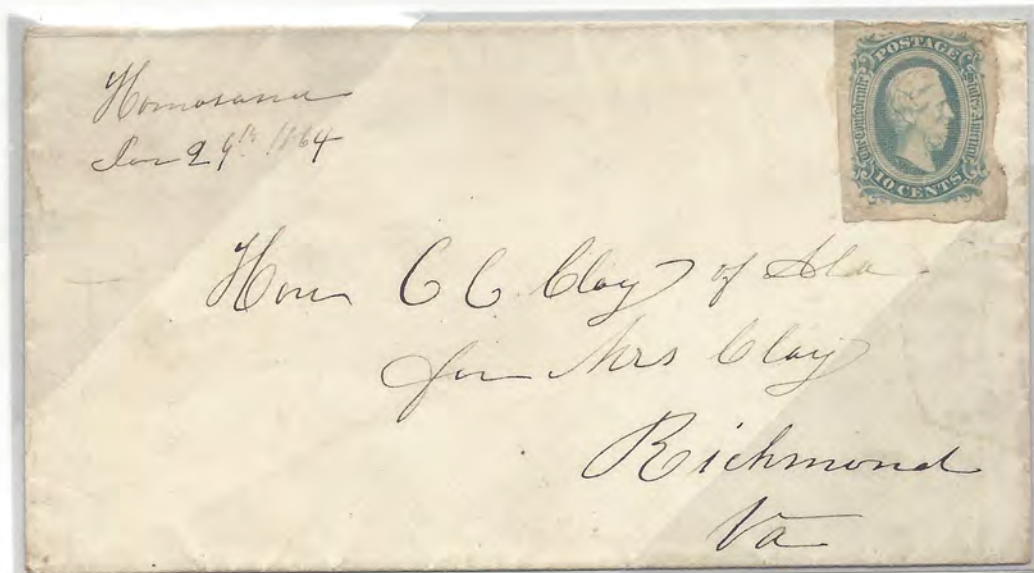 Homosassa
Jan 29th 1864
POSTAGE
The Confederate States of America
10 CENTS
Hon C C Clay of Ala.
for Mrs Clay
Richmond
Va